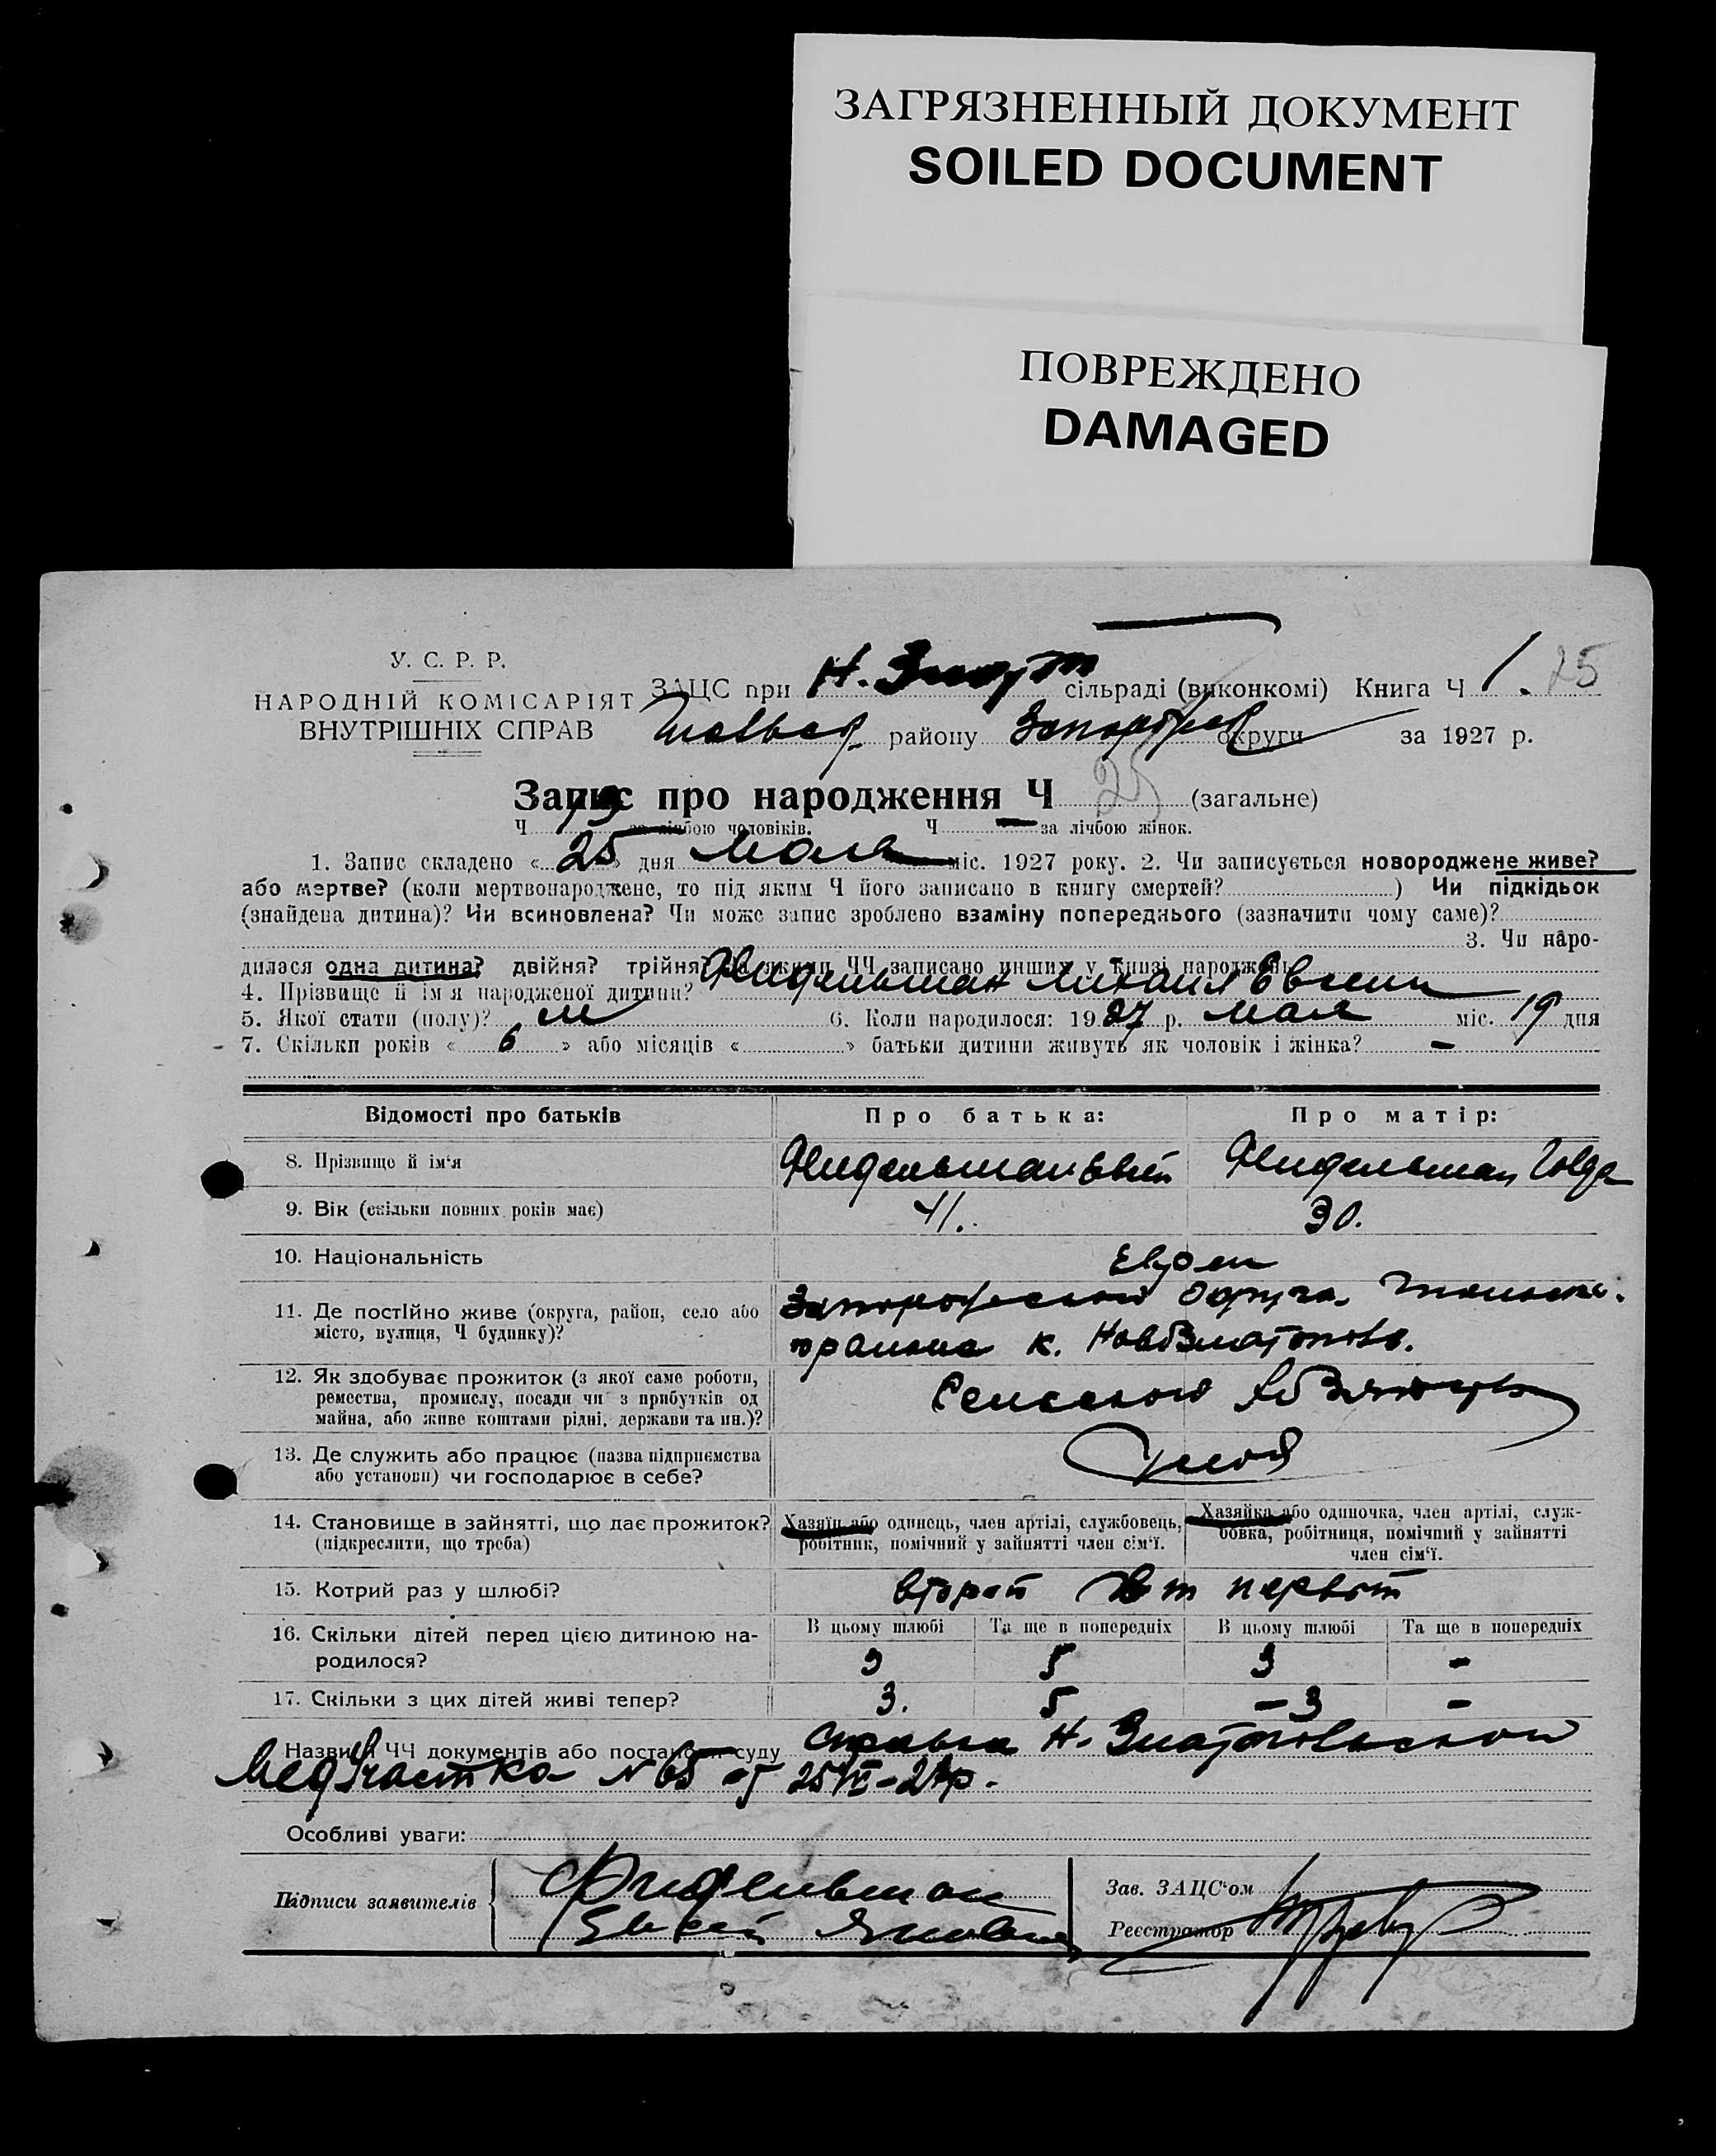 ЗАГРЯЗНЕННЫЙ ДОКУМЕНТ
SOILED DOCUMENT
ПОВРЕЖДЕНО
DAMAGED
У. С. Р. Р.
НАРОДНІЙ КОМІСАРІЯТ
ВНУТРІШНІХ СПРАВ
ЗАЦС при Н. Злат сільраді (виконкомі) Книга Ч 1. 25
району Запорож округи за 1927 р.
Запис про народження Ч 25 (загальне)
Ч за лічбою чоловіків. Ч — за лічбою жінок.
1. Запис складено « 25 » дня Мая міс. 1927 року. 2. Чи записується новороджене живе?
або мертве? (коли мертвонароджене, то під яким Ч його записано в книгу смертей? ) Чи підкідьок
(знайдена дитина)? Чи всиновлена? Чи може запис зроблено взаміну попереднього (зазначити чому саме)?
3. Чи наро-
дилася одна дитина? двійня? трійня? якими ЧЧ записано инших у книзі народжень
4. Прізвище й ім'я народженої дитини? Фидельман Михаил Евсеев
5. Якої стати (полу)? м 6. Коли народилося: 1927 р. мая міс. 19 дня
7. Скільки років « 6 » або місяців « » батьки дитини живуть як чоловік і жінка? —
Відомості про батьків
Про батька:
Про матір:
8. Прізвище й ім'я Фидельман Евсей Фидельман Голда
9. Вік (скільки повних років має) 41. 30.
10. Національність Евреи
11. Де постійно живе (округа, район, село або
місто, вулиця, Ч будинку)?
Запорожской округа
района к. НовоЗлатополь.
12. Як здобуває прожиток (з якої саме роботи,
ремества, промислу, посади чи з прибутків од
майна, або живе коштами рідні, держави та ин.)?
Сельского
13. Де служить або працює (назва підприємства
або установи) чи господарює в себе?
14. Становище в зайнятті, що дає прожиток?
(підкреслити, що треба)
Хазяїн або одинець, член артілі, службовець,
робітник, помічний у зайнятті член сім'ї.
Хазяйка або одиночка, член артілі, служ-
бовка, робітниця, помічний у зайнятті
член сім'ї.
15. Котрий раз у шлюбі? второй первый
16. Скільки дітей перед цією дитиною на-
родилося?
В цьому шлюбі Та ще в попередніх В цьому шлюбі Та ще в попередніх
3 5 3 -
17. Скільки з цих дітей живі тепер? 3. 5 - 3 -
Назви й ЧЧ документів або постанови суду справка Н. Златопольской
МедУчастка N 65 от 25/VI-27р.
Особливі уваги:
Підписи заявителів
Фидельман
Евсей
Зав. ЗАЦС'ом
Реєстратор